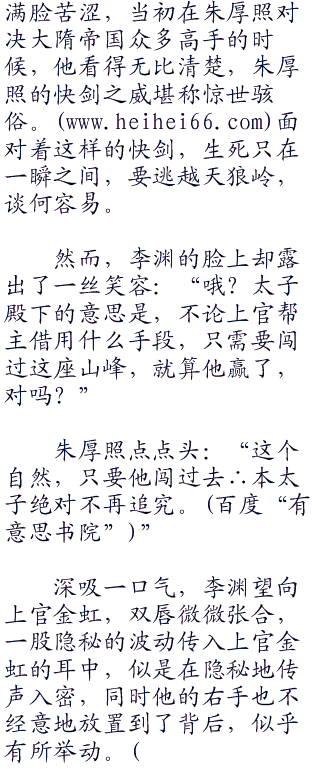 满脸苦涩，当初在朱厚照对
决大隋帝国众多高手的时
候，他看得无比清楚，朱厚
照的快剑之威堪称惊世骇
俗。(www.heihei66.com)面
对着这样的快剑，生死只在
一瞬之间，要逃越天狼岭，
谈何容易。
然而，李渊的脸上却露
出了一丝笑容：“哦？太子
殿下的意思是，不论上官帮
主借用什么手段，只需要闯
过这座山峰，就算他赢了，
对吗？”
朱厚照点点头：“这个
自然，只要他闯过去∴本太
子绝对不再追究。(百度“有
意思书院”)”
深吸一口气，李渊望向
上官金虹，双唇微微张合，
一股隐秘的波动传入上官金
虹的耳中，似是在隐秘地传
声入密，同时他的右手也不
经意地放置到了背后，似乎
有所举动。(